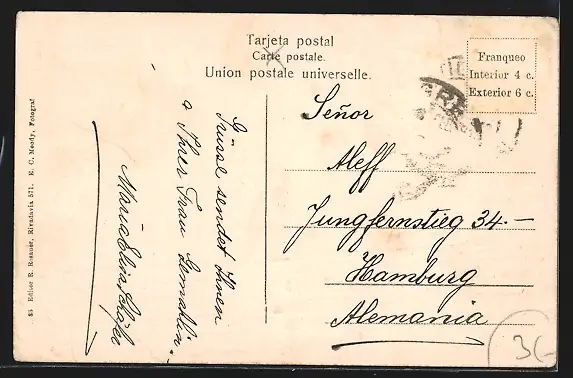 Tarjeta postal
Carte postale.
Union postale universelle.
Franqueo
Interior 4 c.
Exterior 6 c.
Señor
Aleff
Jungfernstieg 34.-
Hamburg
Alemania
Grüsse sendet Ihnen
u Ihrer Frau Gemahlin.
Maria Elisa
83 Editor R. Rosauer, Rivadavia 571. E. C. Moody, Fotograf
36-